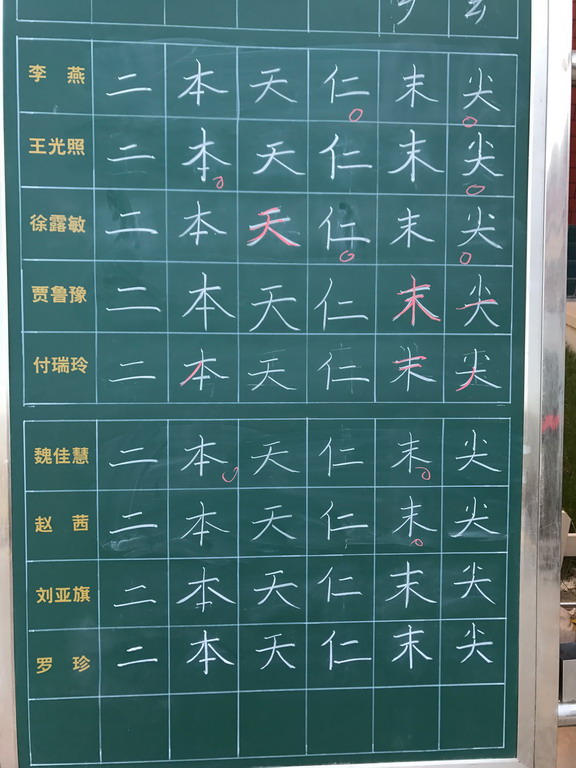 李燕 二 本 天 仁 末 尖
王光照 二 本 天 仁 末 尖
徐露敏 二 本 天 仁 末 尖
贾鲁豫 二 本 天 仁 末 尖
付瑞玲 二 本 天 仁 末 尖
魏佳慧 二 本 天 仁 末 尖
赵茜 二 本 天 仁 末 尖
刘亚旗 二 本 天 仁 末 尖
罗珍 二 本 天 仁 末 尖